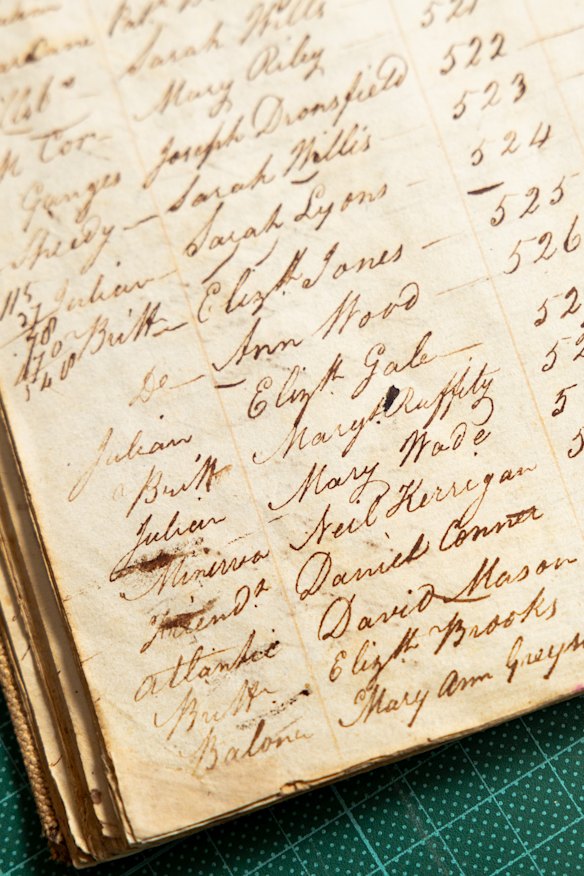 Sarah Willis 521
Mary Riley 522
Ganges Joseph Dronsfield 523
Sheedy — Sarah Willis — 524
Sarah Lyons — 525
115
27 Julian — Elizth. Jones — 526
78
170 Britt — Ann Wood — 52
548
Do — Elizth. Gale — 52
Julian Maryt. Ruffity 5
Britt Mary Wade 5
Julian Neil Kerrigan
Minerva Daniel Conner
Friends David Mason
Atlantic Elizth. Brooks
Britt Mary Ann